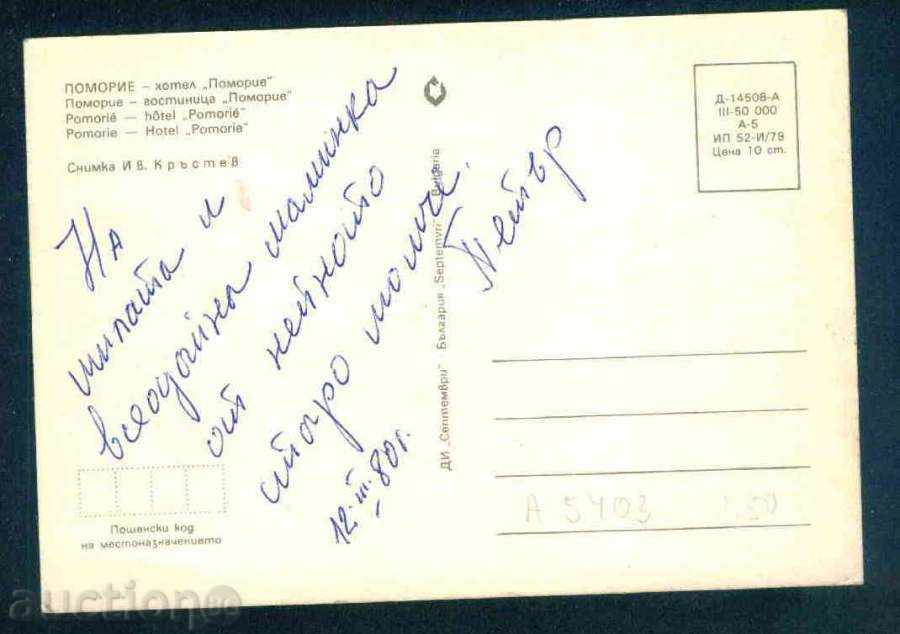 ПОМОРИЕ – хотел „Поморие"
Поморие – гостиница „Поморие"
Pomorié — hôtel „Pomorié"
Pomorie — Hotel „Pomorie"
Снимка Ив. Кръстев
Д-14508-А
III-50 000
А-5
ИП 52-И/79
Цена 10 ст.
На
милата и
всеодайна маминка
от нейното
старо момче.
Петър
12.III.80г.
ДИ „Септември" България „Septemvri" Bulgaria
Пощенски код
на местоназначението
А 5403
auction